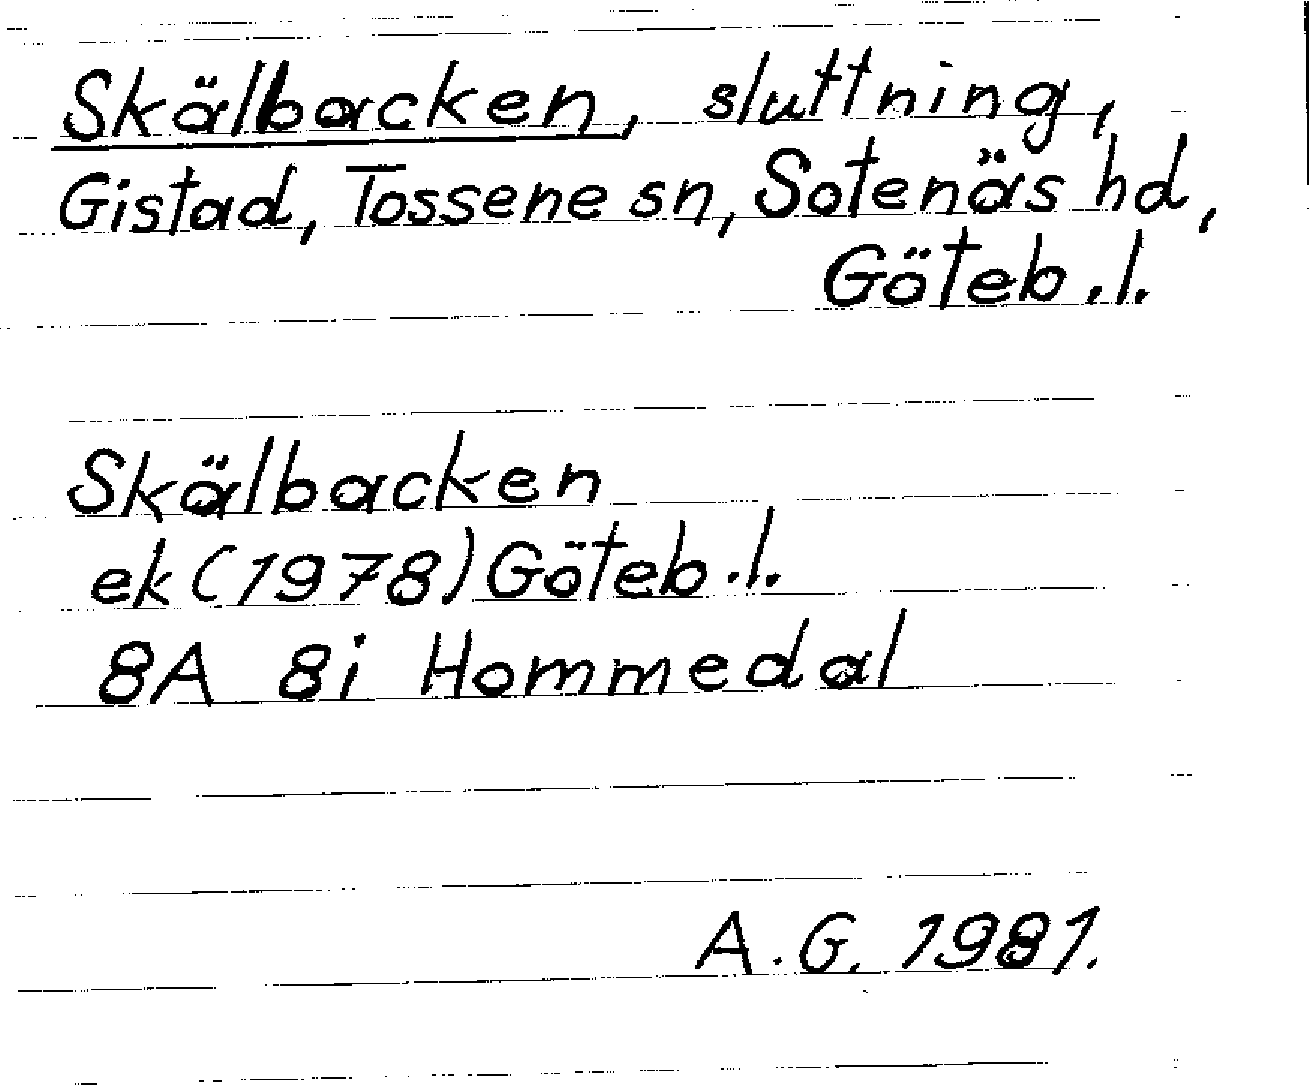 Skälbacken, sluttning,
Gistad, Tossene sn, Sotenäs hd,
Göteb.l.
Skälbacken
ek (1978) Göteb.l.
8A 8i Hommedal
A.G. 1981.